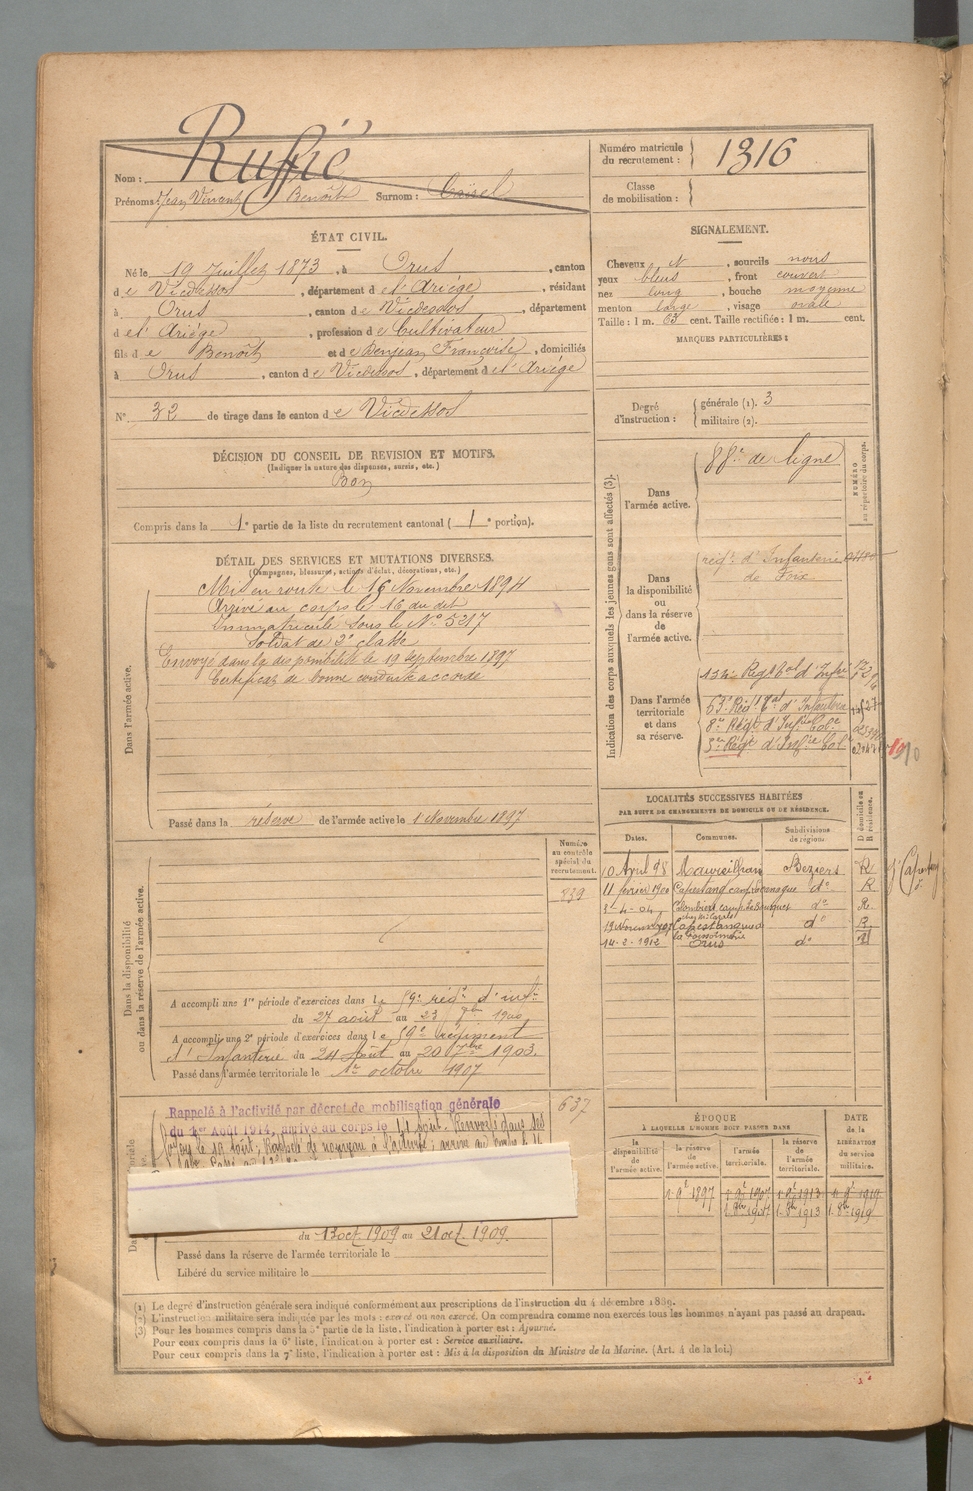 Nom : Ruffié
Prénoms : Jean Vincent Benoît Surnom :
Numéro matricule du recrutement : 1316
Classe de mobilisation :
ÉTAT CIVIL.
Né le 19 Juillet 1873, à Orus, canton
de Vicdessos, département de l'Ariège, résidant
à Orus, canton de Vicdessos, département
de l'Ariège, profession de Cultivateur
fils de Benoît et de Denjean Françoise, domiciliés
à Orus, canton de Vicdessos, département de l'Ariège
N° 32 de tirage dans le canton de Vicdessos
DÉCISION DU CONSEIL DE REVISION ET MOTIFS.
(Indiquer la nature des dispenses, sursis, etc.)
Bon
Compris dans la 1e partie de la liste du recrutement cantonal (1e portion).
DÉTAIL DES SERVICES ET MUTATIONS DIVERSES.
(Campagnes, blessures, actions d'éclat, décorations, etc.)
Dans l'armée active.
Mis en route le 16 Novembre 1894
Arrivé au corps le 16 du dit
Immatriculé sous le N° 5217
Soldat de 2e classe
Envoyé dans la disponibilité le 19 Septembre 1897
Certificat de bonne conduite accordé
Passé dans la réserve de l'armée active le 1 Novembre 1897
Numéro au contrôle spécial du recrutement.
839
Dans la disponibilité ou dans la réserve de l'armée active.
A accompli une 1re période d'exercices dans le 59e régt d'inftie
du 27 août au 23 7bre 1900
A accompli une 2e période d'exercices dans le 59e régiment
d'Infanterie du 24 Août au 20 7bre 1903.
Passé dans l'armée territoriale le 1er octobre 1907
637
Rappelé à l'activité par décret de mobilisation générale
du 1er Août 1914, arrivé au corps le
du 13 oct. 1909 au 21 oct. 1909.
Passé dans la réserve de l'armée territoriale le
Libéré du service militaire le
SIGNALEMENT.
Cheveux N, sourcils noirs
yeux bleus, front couvert
nez long, bouche moyenne
menton large, visage ovale
Taille : 1 m. 63 cent. Taille rectifiée : 1 m. cent.
MARQUES PARTICULIÈRES :
Degré d'instruction : générale (1). 3
militaire (2).
Indication des corps auxquels les jeunes gens sont affectés (3).
NUMÉRO au répertoire du corps.
Dans l'armée active.
88e de ligne
Dans la disponibilité ou dans la réserve de l'armée active.
régt d'Infanterie
de Foix
Dans l'armée territoriale et dans sa réserve.
134e Régt tal d'Infie
53e Régt tal d'Infanterie
8e Régt d'Infie Cole
3e Régt d'Infie Cole
LOCALITÉS SUCCESSIVES HABITÉES
PAR SUITE DE CHANGEMENTS DE DOMICILE OU DE RÉSIDENCE.
Dates. Communes. Subdivisions de région. D domicile ou R résidence.
10 Avril 98 Maureilhan Béziers R
11 février 1900 Capestang do R
3-4-04 Colombiers do R
Capestang do R
14-2-1912 Orus do
ÉPOQUE
À LAQUELLE L'HOMME DOIT PASSER DANS
DATE de la LIBÉRATION du service militaire.
la disponibilité de l'armée active.
la réserve de l'armée active.
l'armée territoriale.
la réserve de l'armée territoriale.
1. 9e 1897 1. 9e 1907 1. 9e 1913 1. 9e 1919
1. 8bre 1907 1. 8bre 1913 1. 8bre 1919
(1) Le degré d'instruction générale sera indiqué conformément aux prescriptions de l'instruction du 4 décembre 1889.
(2) L'instruction militaire sera indiquée par les mots : exercé ou non exercé. On comprendra comme non exercés tous les hommes n'ayant pas passé au drapeau.
(3) Pour les hommes compris dans la 5e partie de la liste, l'indication à porter est : Ajourné.
Pour ceux compris dans la 6e liste, l'indication à porter est : Service auxiliaire.
Pour ceux compris dans la 7e liste, l'indication à porter est : Mis à la disposition du Ministre de la Marine. (Art. 4 de la loi.)